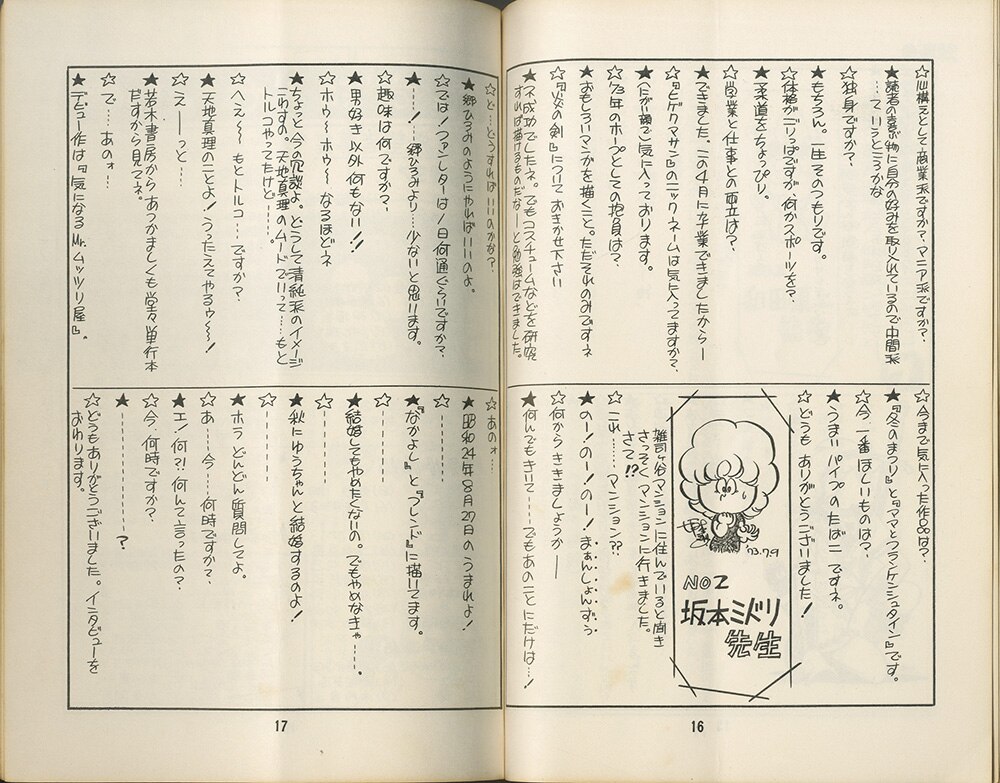 ☆心構えとして商業系ですか？マニア系ですか？
★読者の喜ぶ物に自分の好みを取り入れているので中間系
…ていうところかな
☆独身ですか？
★もちろん。一生そのつもりです。
☆体格がごりっぱですが、何かスポーツを？
★柔道をちょっぴり。
☆学業と仕事との両立は？
★できました、この4月に卒業できましたから―
☆『ヒゲクマサン』のニックネームは気に入ってますか？
★(にが顔で)気に入っております。
☆'73年のホープとしての抱負は？
★おもしろいマンガを描くこと。ただそれのみですネ
☆『炎の剣』についておきかせ下さい
★不成功でしたネ。でもコスチュームなどを研究
すれば描けるものだな――との勉強はできました。
☆今まで気に入った作品は？
★『冬のまつり』と『ママとフランケンシュタイン』です。
☆今一番ほしいものは？
★うまいパイプのたばこですネ。
☆どうもありがとうございました！
'73.7.9
NO2
坂本ミドリ
先生
雑司ヶ谷マンションに住んでいると聞き
さっそくマンションに行きました。
さて!?
☆これ……マンション??
★のー！のー！のー！まぁんしょんずぅ
☆何からききましょうか――
★何んでもきいて……でもあのことにだけは…！
16
☆ど…どうすればいいのかな？
★郷ひろみのようにやればいいのよ。
☆では！ファンレターは1日何通ぐらいですか？
★…！…郷ひろみより…少ないと思います。
☆趣味は何ですか？
★男好き以外何もない!!
☆ホゥ～ホゥ～なるほどネ
★ちょっと今の冗談よ。どうして清純系のイメージ
こわすの。天地真理のムードでいって……もと
トルコやってたけど……。
☆へえ～～もとトルコ…ですか？
★天地真理のことよ！うったえてやるゥ～！
☆え――っと…
★若木書房からあつかましくも堂々単行本
だすから見てネ。
☆で…あのォ…
★デビュー作は『気になるMr.ムッツリ屋』。
☆あのォ…
★昭和24年8月27日のうまれよ！
☆-----
★『なかよし』と『フレンド』に描いてます。
☆-----
★結婚してもやめたくないの。でもやめなきゃ----。
☆-----
★秋にゆうちゃんと結婚するのよ！
☆-----
★ホラどんどん質問してよ。
☆あ……今…何時ですか？
★エ！何?!何んて言ったの？
☆今、何時ですか？
★---------？
☆どうもありがとうございました。インタビューを
おわります。
17